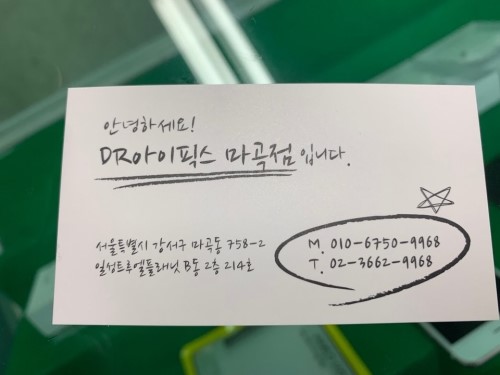 안녕하세요!
DR아이픽스 마곡점입니다.
서울특별시 강서구 마곡동 758-2
일성트루엘플래닛 B동 2층 214호
M. 010-6750-9968
T. 02-3662-9968